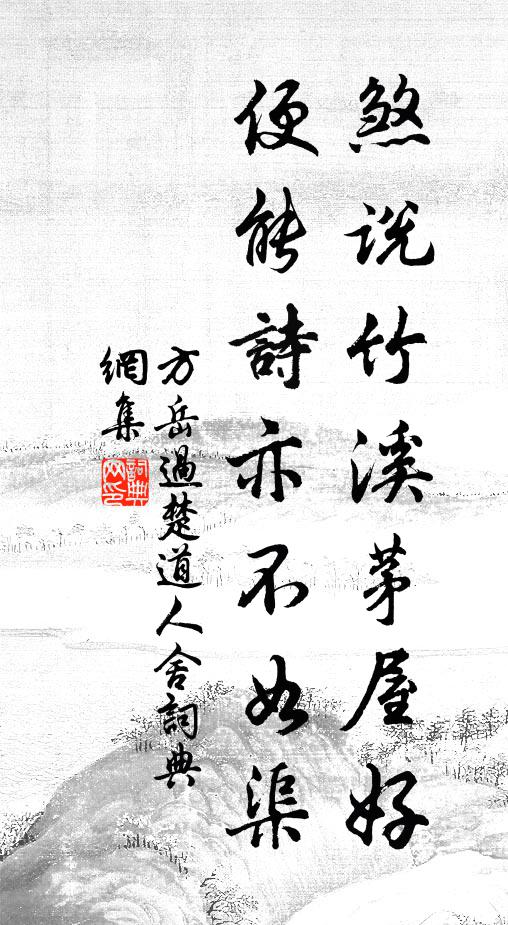 煞說竹溪茅屋好
便能詩亦不如渠
方岳過楚道人舍詞典
網集
詞典網印